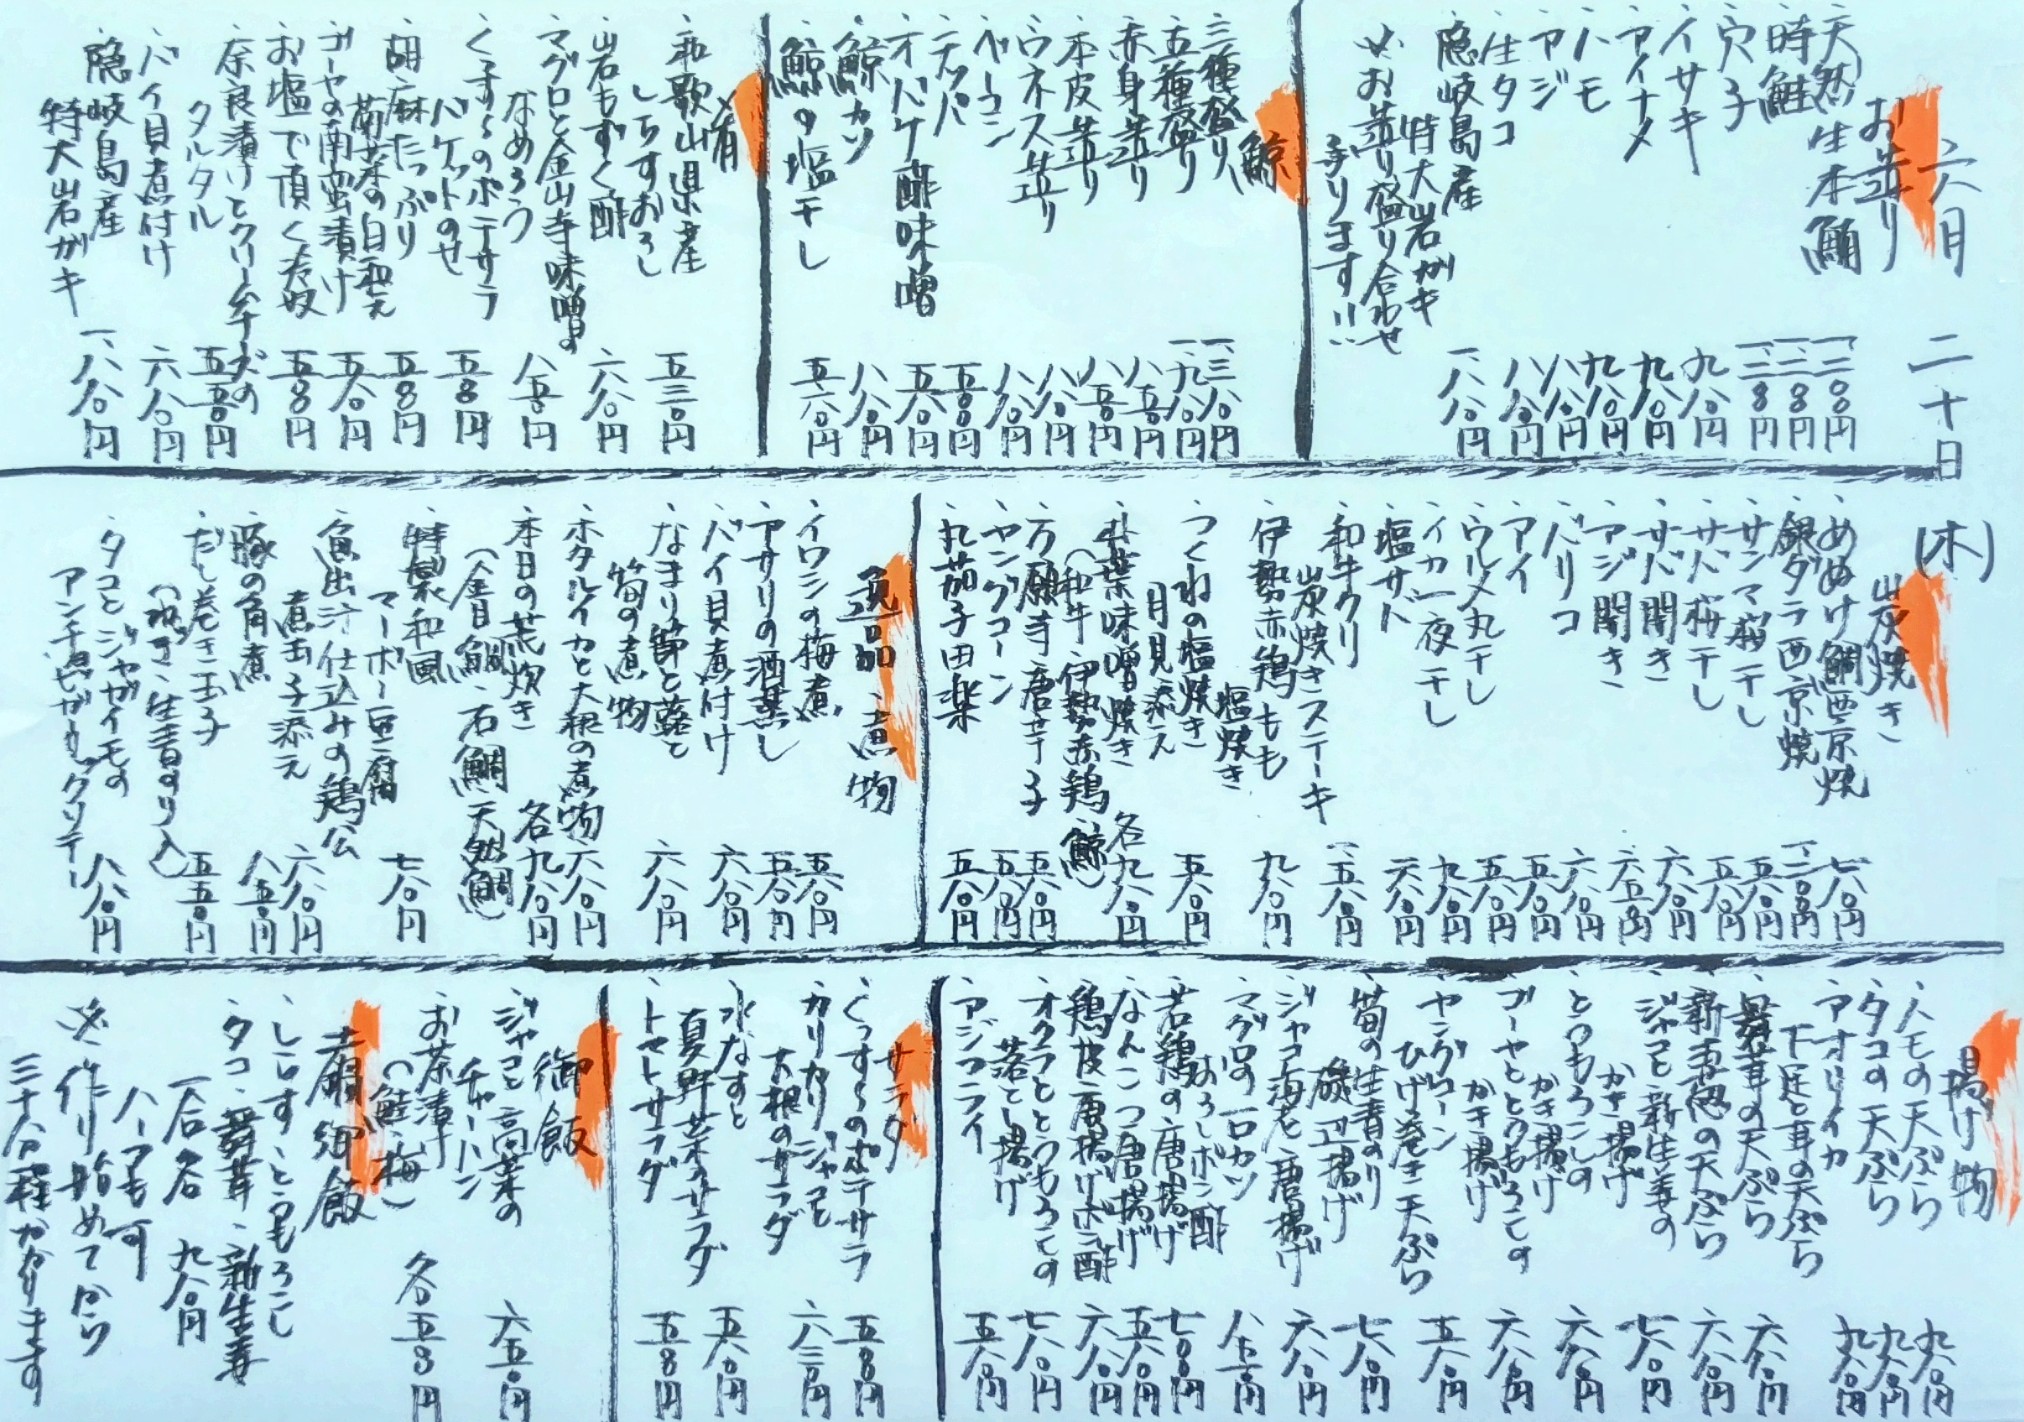 六月 二十日 (木)
お造り
天然生本鮪 一二八〇円
時鮭 一二八〇円
穴子 一二八〇円
イサキ 九八〇円
アイナメ 九八〇円
ハモ 九八〇円
アジ 八八〇円
生タコ 八八〇円
隠岐島産
特大岩がキ 一、八八〇円
※お造り盛り合わせ
承ります!!
鯨
三種盛り 一、三八〇円
五種盛り 一、九八〇円
赤身造り 八五〇円
本皮造り 八五〇円
ウネス造り 八八〇円
ベーコン 八八〇円
テッパ 五八〇円
オバケ酢味噌 五八〇円
鯨カツ 八八〇円
鯨の塩干し 五八〇円
肴
和歌山県産
しらすおろし 五三〇円
岩もずく酢 六八〇円
マグロと金山寺味噌の
なめろう 八五〇円
くずし〜のポテサラ
バケットのせ 五八〇円
胡麻たっぷり
菊菜の白和え 五八〇円
ゴーヤの南蛮漬け 五八〇円
お塩で頂く冷奴 五八〇円
奈良漬けとクリームチーズの
タルタル 五五〇円
バイ貝煮付け 六八〇円
隠岐島産
特大岩ガキ 一、八八〇円
炭焼き
めぬけ鯛西京焼 七八〇円
銀ダラ西京焼 一二〇〇円
サンマ桜干し 五八〇円
サバ桜干し 五八〇円
サバ開き 六八〇円
アジ開き 六五〇円
バリコ 六八〇円
アイ 五八〇円
ウルメ丸干し 五八〇円
イカ一夜干し 九八〇円
塩サバ 六八〇円
和牛クリ
炭焼きステーキ 一、五八〇円
伊勢赤鶏もも
塩焼き 九八〇円
つくねの塩焼き
月見添え 五八〇円
朴葉味噌焼き
(和牛、伊勢赤鶏、鯨) 各九八〇円
万願寺唐辛子 五八〇円
ヤングコーン 五八〇円
丸茄子田楽 五八〇円
逸品、煮物
イワシの梅煮 五八〇円
アサリの酒蒸し 五八〇円
バイ貝煮付け 六八〇円
なまり節と蕗と
筍の煮物 六八〇円
ホタルイカと大根の煮物 六八〇円
本日の荒炊き 各九八〇円
(金目鯛、石鯛、天然鯛)
特製和風
マーボー豆腐 七八〇円
魚出汁仕込みの鶏公
煮玉子添え 六八〇円
豚の角煮 八五〇円
だし巻き玉子
(ネギ、生青のり入) 五五〇円
タコとジャガイモの
アンチョビガーリックソテー 八八〇円
揚げ物
ハモの天ぷら 九八〇円
タコの天ぷら 九八〇円
アオリイカ
下足と耳の天ぷら 九八〇円
舞茸の天ぷら 六八〇円
新玉葱の天ぷら 六八〇円
ジャコと新生姜の
かき揚げ 七八〇円
とうもろこしの
かき揚げ 六八〇円
ゴーヤととうもろこしの
かき揚げ 六八〇円
ヤングコーン
ひげ巻き天ぷら 五八〇円
筍の生青のり
磯辺揚げ 七八〇円
ジャコ海老唐揚げ 六八〇円
マグロの一口カツ
おろしポン酢 八五〇円
若鶏の唐揚げ 七〇〇円
なんこつ唐揚げ 五八〇円
鶏皮唐揚げポン酢 六八〇円
オクラととうもろこしの
落とし揚げ 七八〇円
アジフライ 五八〇円
サラダ
くっすしのポテサラ 五八〇円
カリカリジャコと
大根のサラダ 六三〇円
水なすと
夏野菜のサラダ 五八〇円
トマトサラダ 五八〇円
御飯
ジャコと高菜の
チャーハン 六五〇円
お茶漬け
(鮭、梅) 各五八〇円
土鍋御飯
しらすとうもろこし
タコ、舞茸、新生姜
一合 各 九八〇円
ハーフも可
※作り始めてから
三十分程かかります